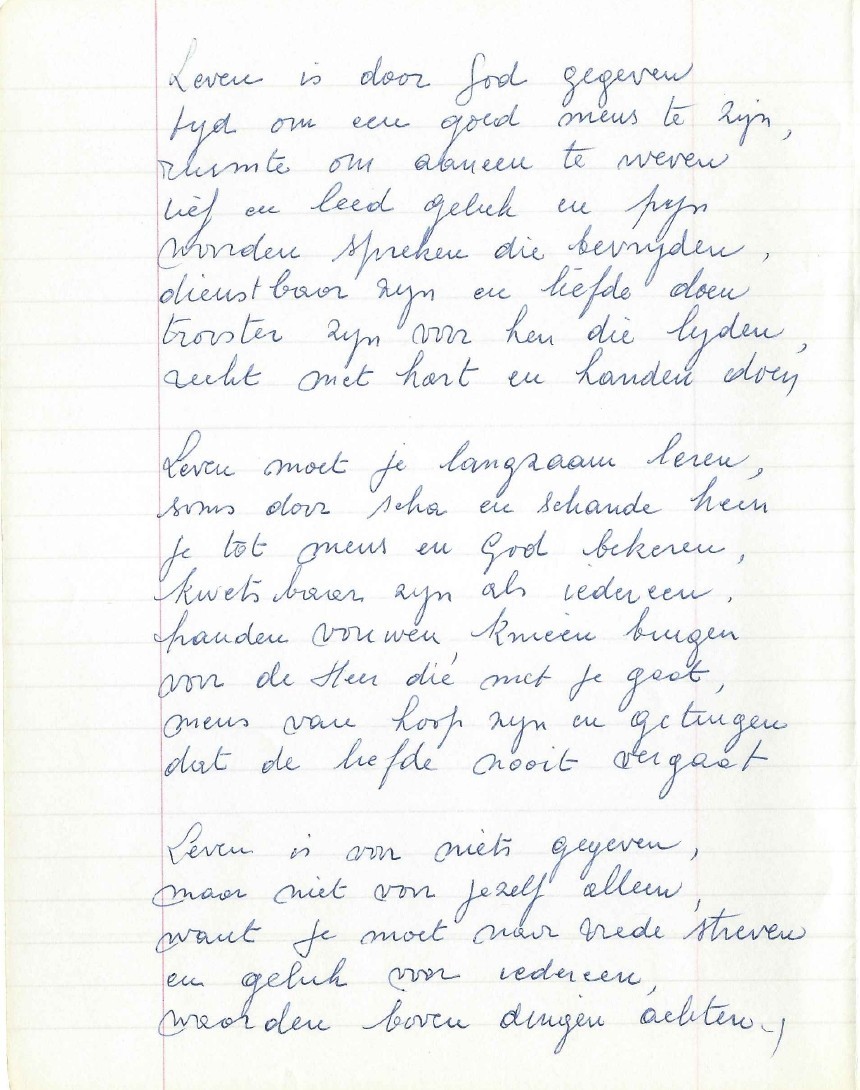 Leven is door God gegeven
tyd om een goed mens te zijn,
ruimte om aaneen te weven
lief en leed geluk en pijn
woorden spreken die bevrijden,
dienstbaar zijn en liefde doen
trooster zijn voor hen die lijden,
recht met hart en handen doen

Leven moet je langzaam leren,
soms door scha en schande heen
je tot mens en God bekeren,
kwetsbaar zijn als iedereen.
handen vouwen, knieën buigen
voor de Heer die met je gaat,
mens van hoop zijn en getuigen
dat de liefde nooit vergaat

Leven is voor niets gegeven,
maar niet voor jezelf alleen,
want je moet naar vrede streven
en geluk voor iedereen,
waarden boven dingen achten.,